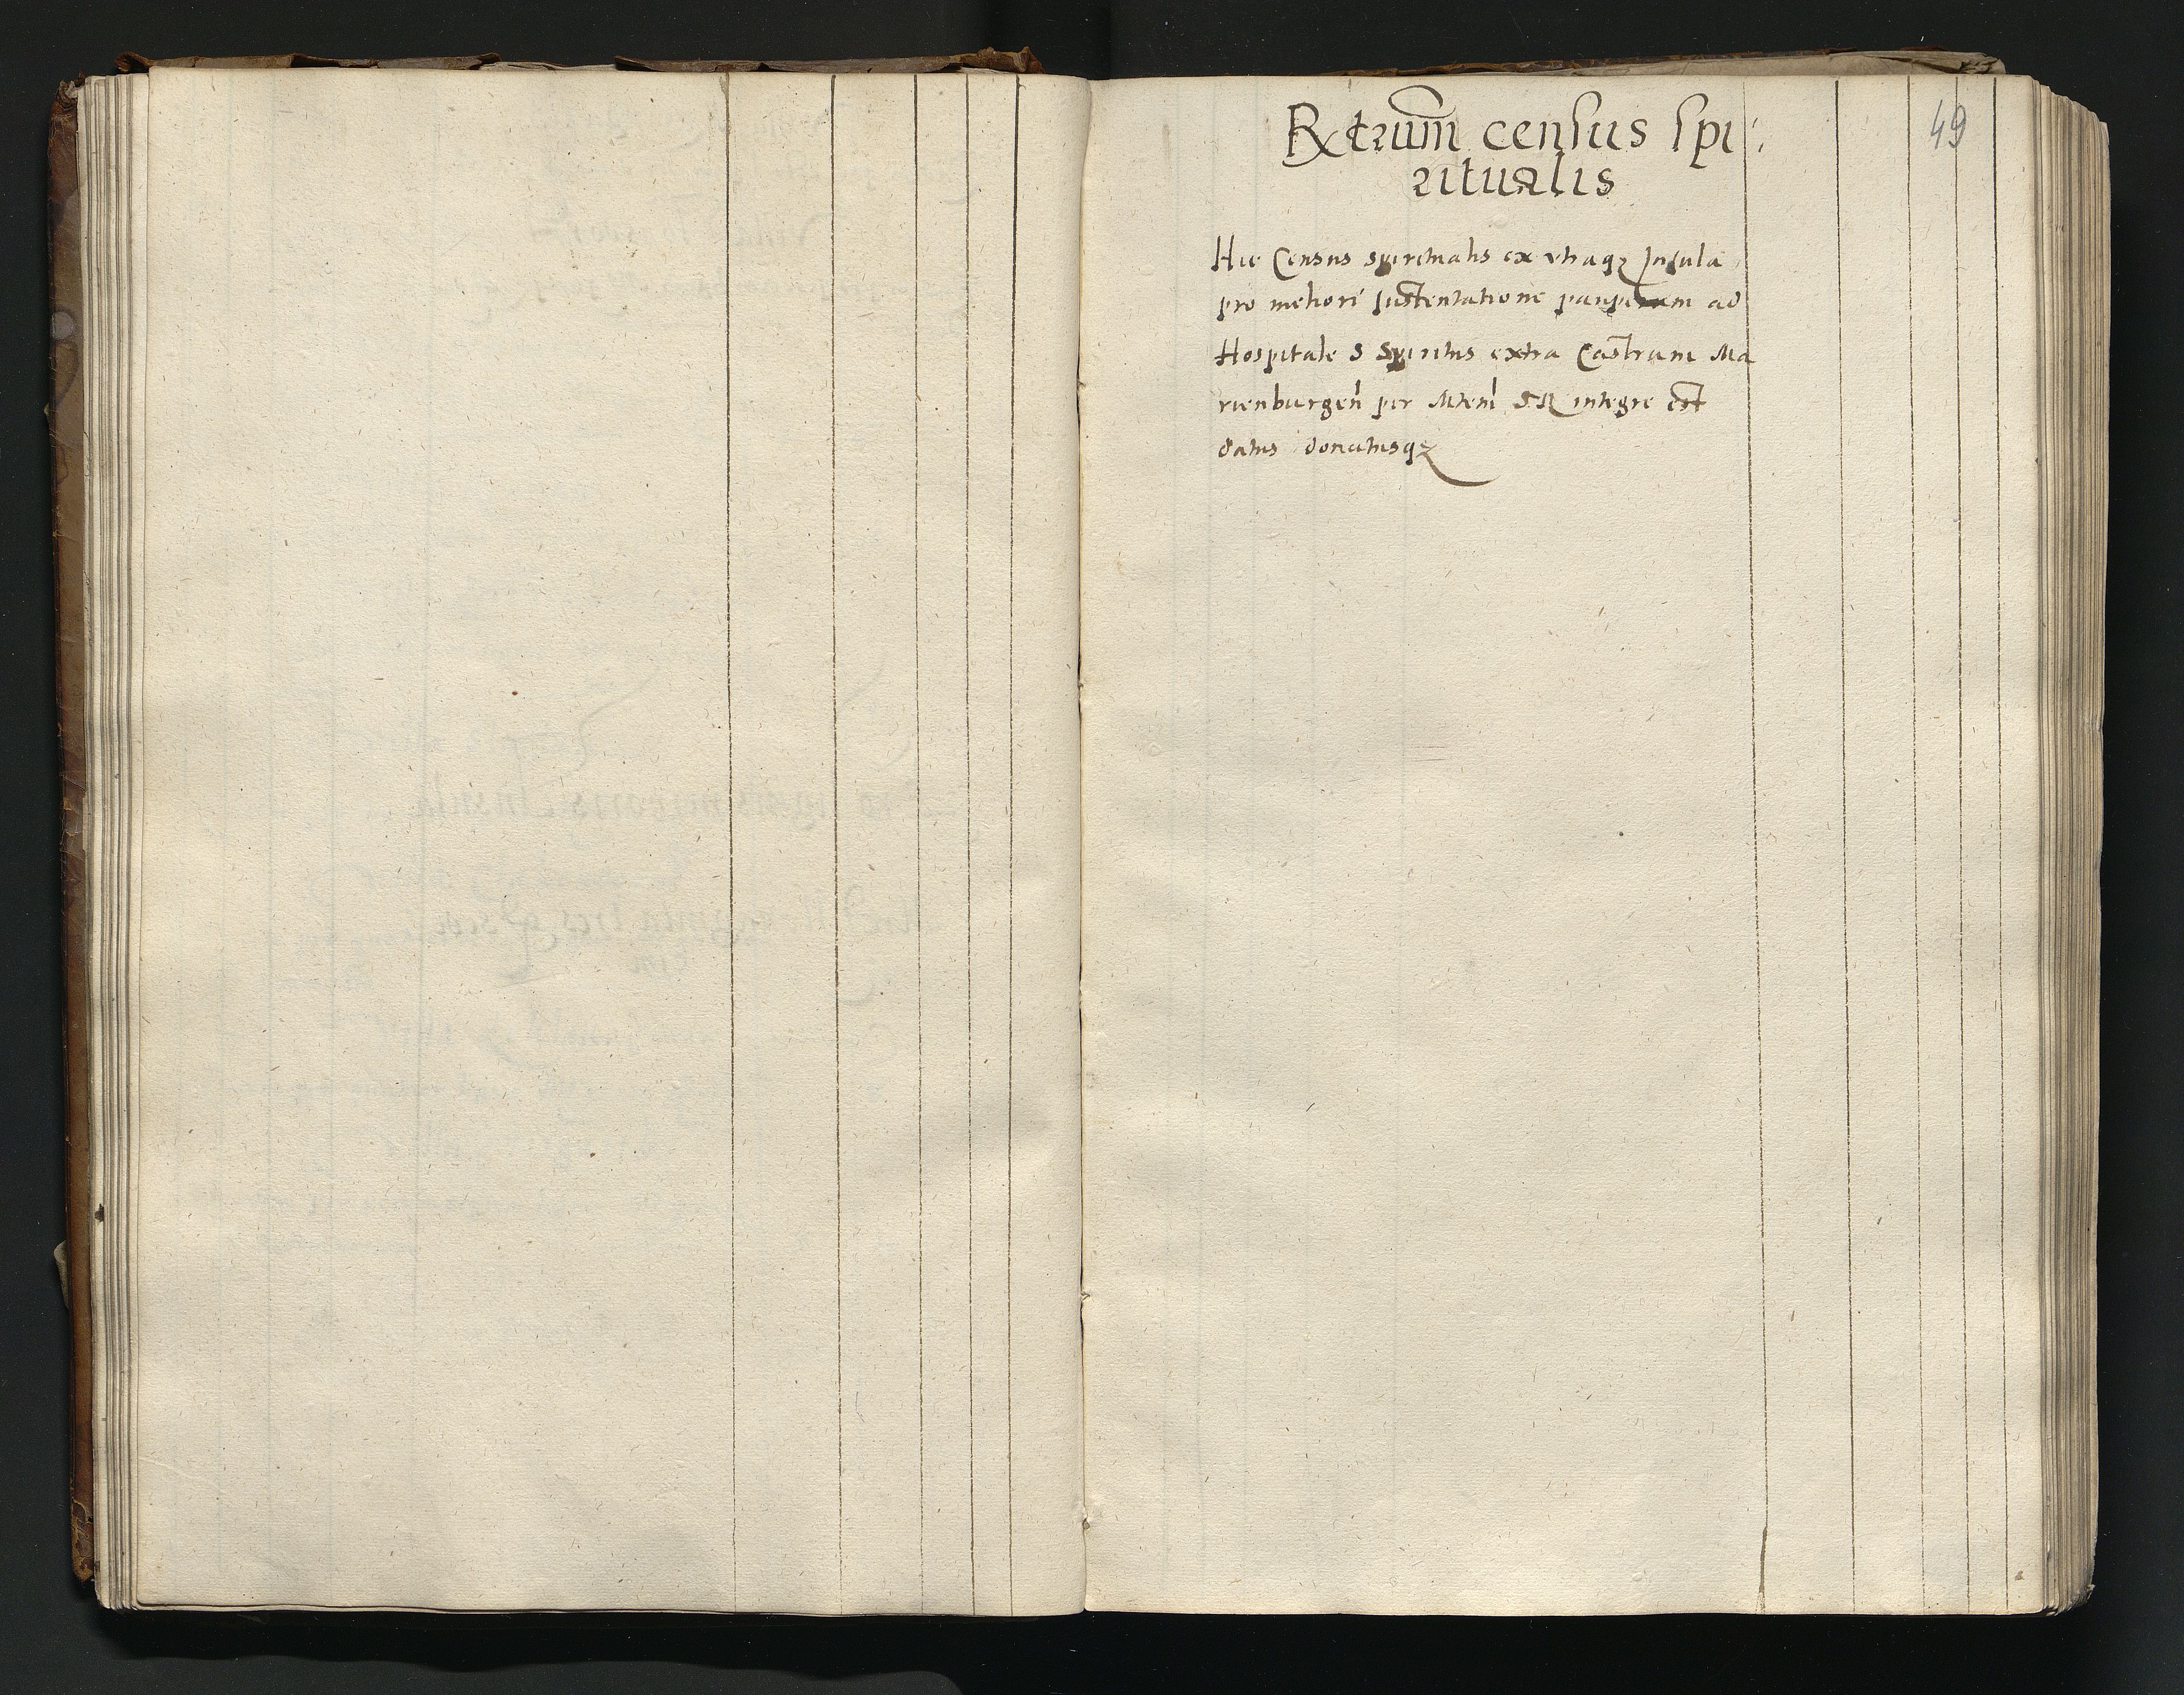 49
Rxtrum census spi:
ritualis
Hic Census spiritualis ex vtraqꝫ Insula
pro meliori sustentatione pauperum ad
Hospitale S Spiritus extra Castrum Ma
rienburgen̄ per Mtem̄ S R integre est
datus donatusqꝫ